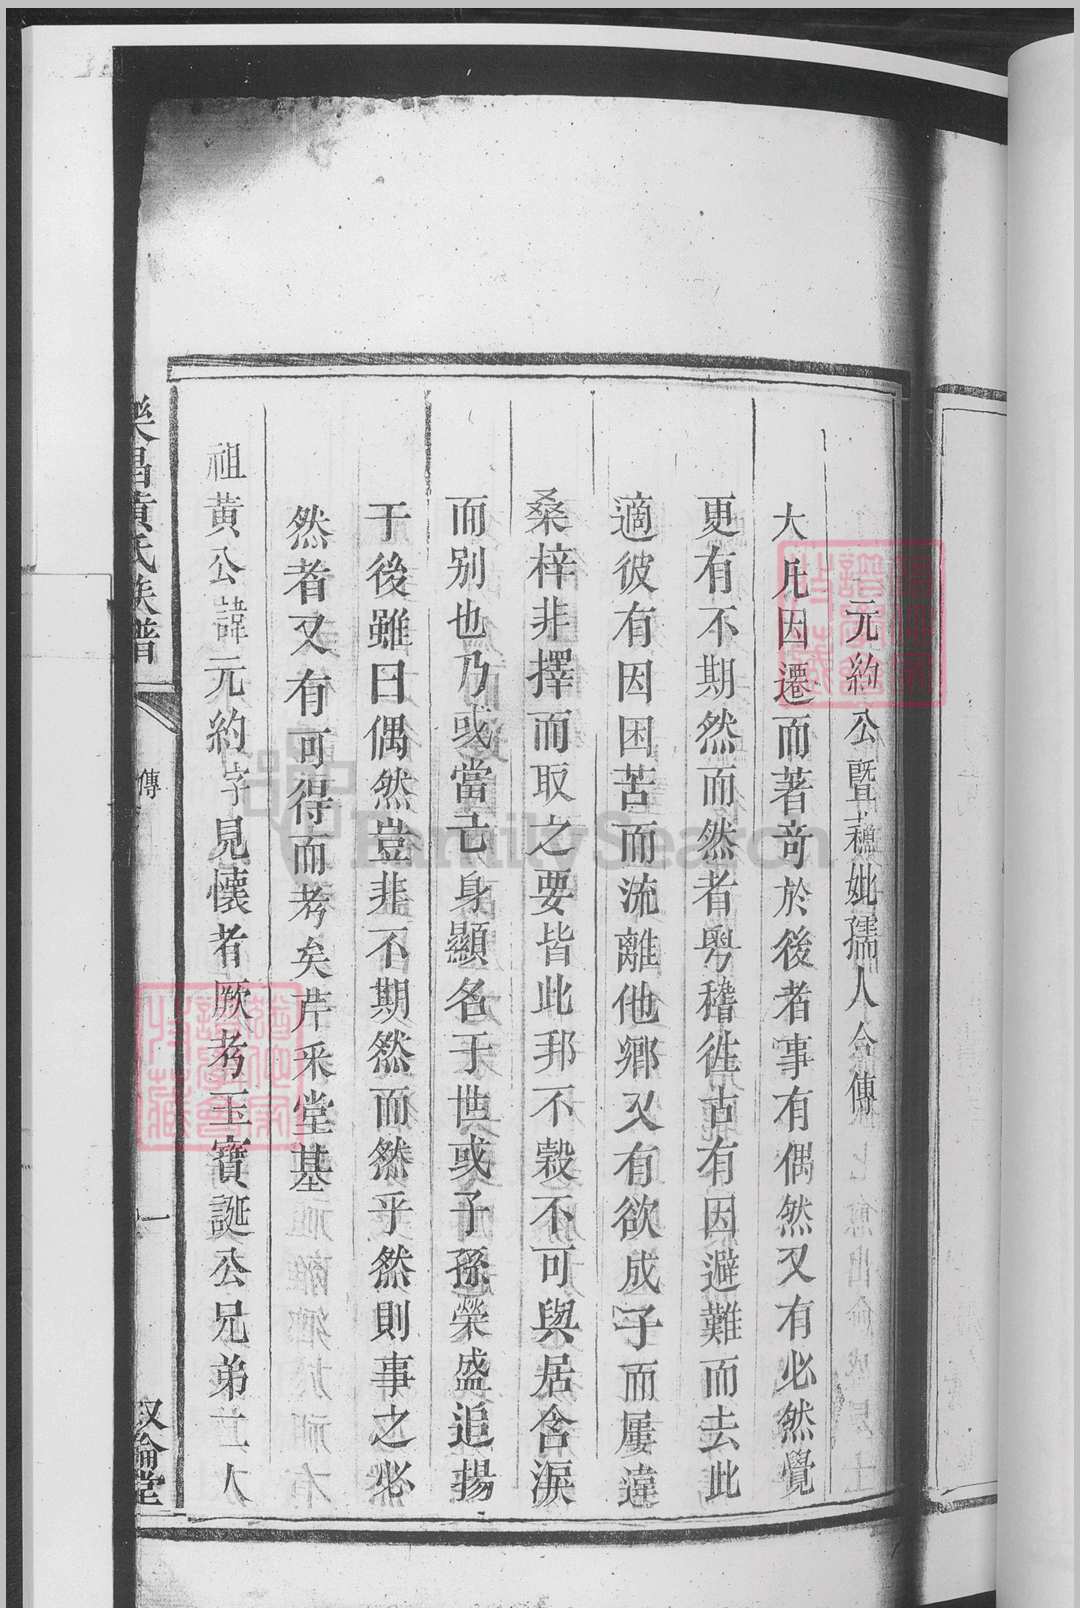 元約公暨蘓妣孺人合傳
大凡因遷而著奇於後者事有偶然又有必然覺
更有不期然而然者粤稽徃古有因避難而去此
適彼有因困苦而流離他鄉又有欲成子而屢違
桑梓非擇而取之要皆此邦不穀不可與居含淚
而别也乃或當己身顯名于世或子孫榮盛追揚
于後雖曰偶然豈非不期然而然乎然則事之必
然者又有可得而考矣芹釆堂基
祖黄公諱元約字見懷者厥考玉寶誕公兄弟二人
樂昌黄氏族譜
傳
一
叙倫堂
FamilySearch